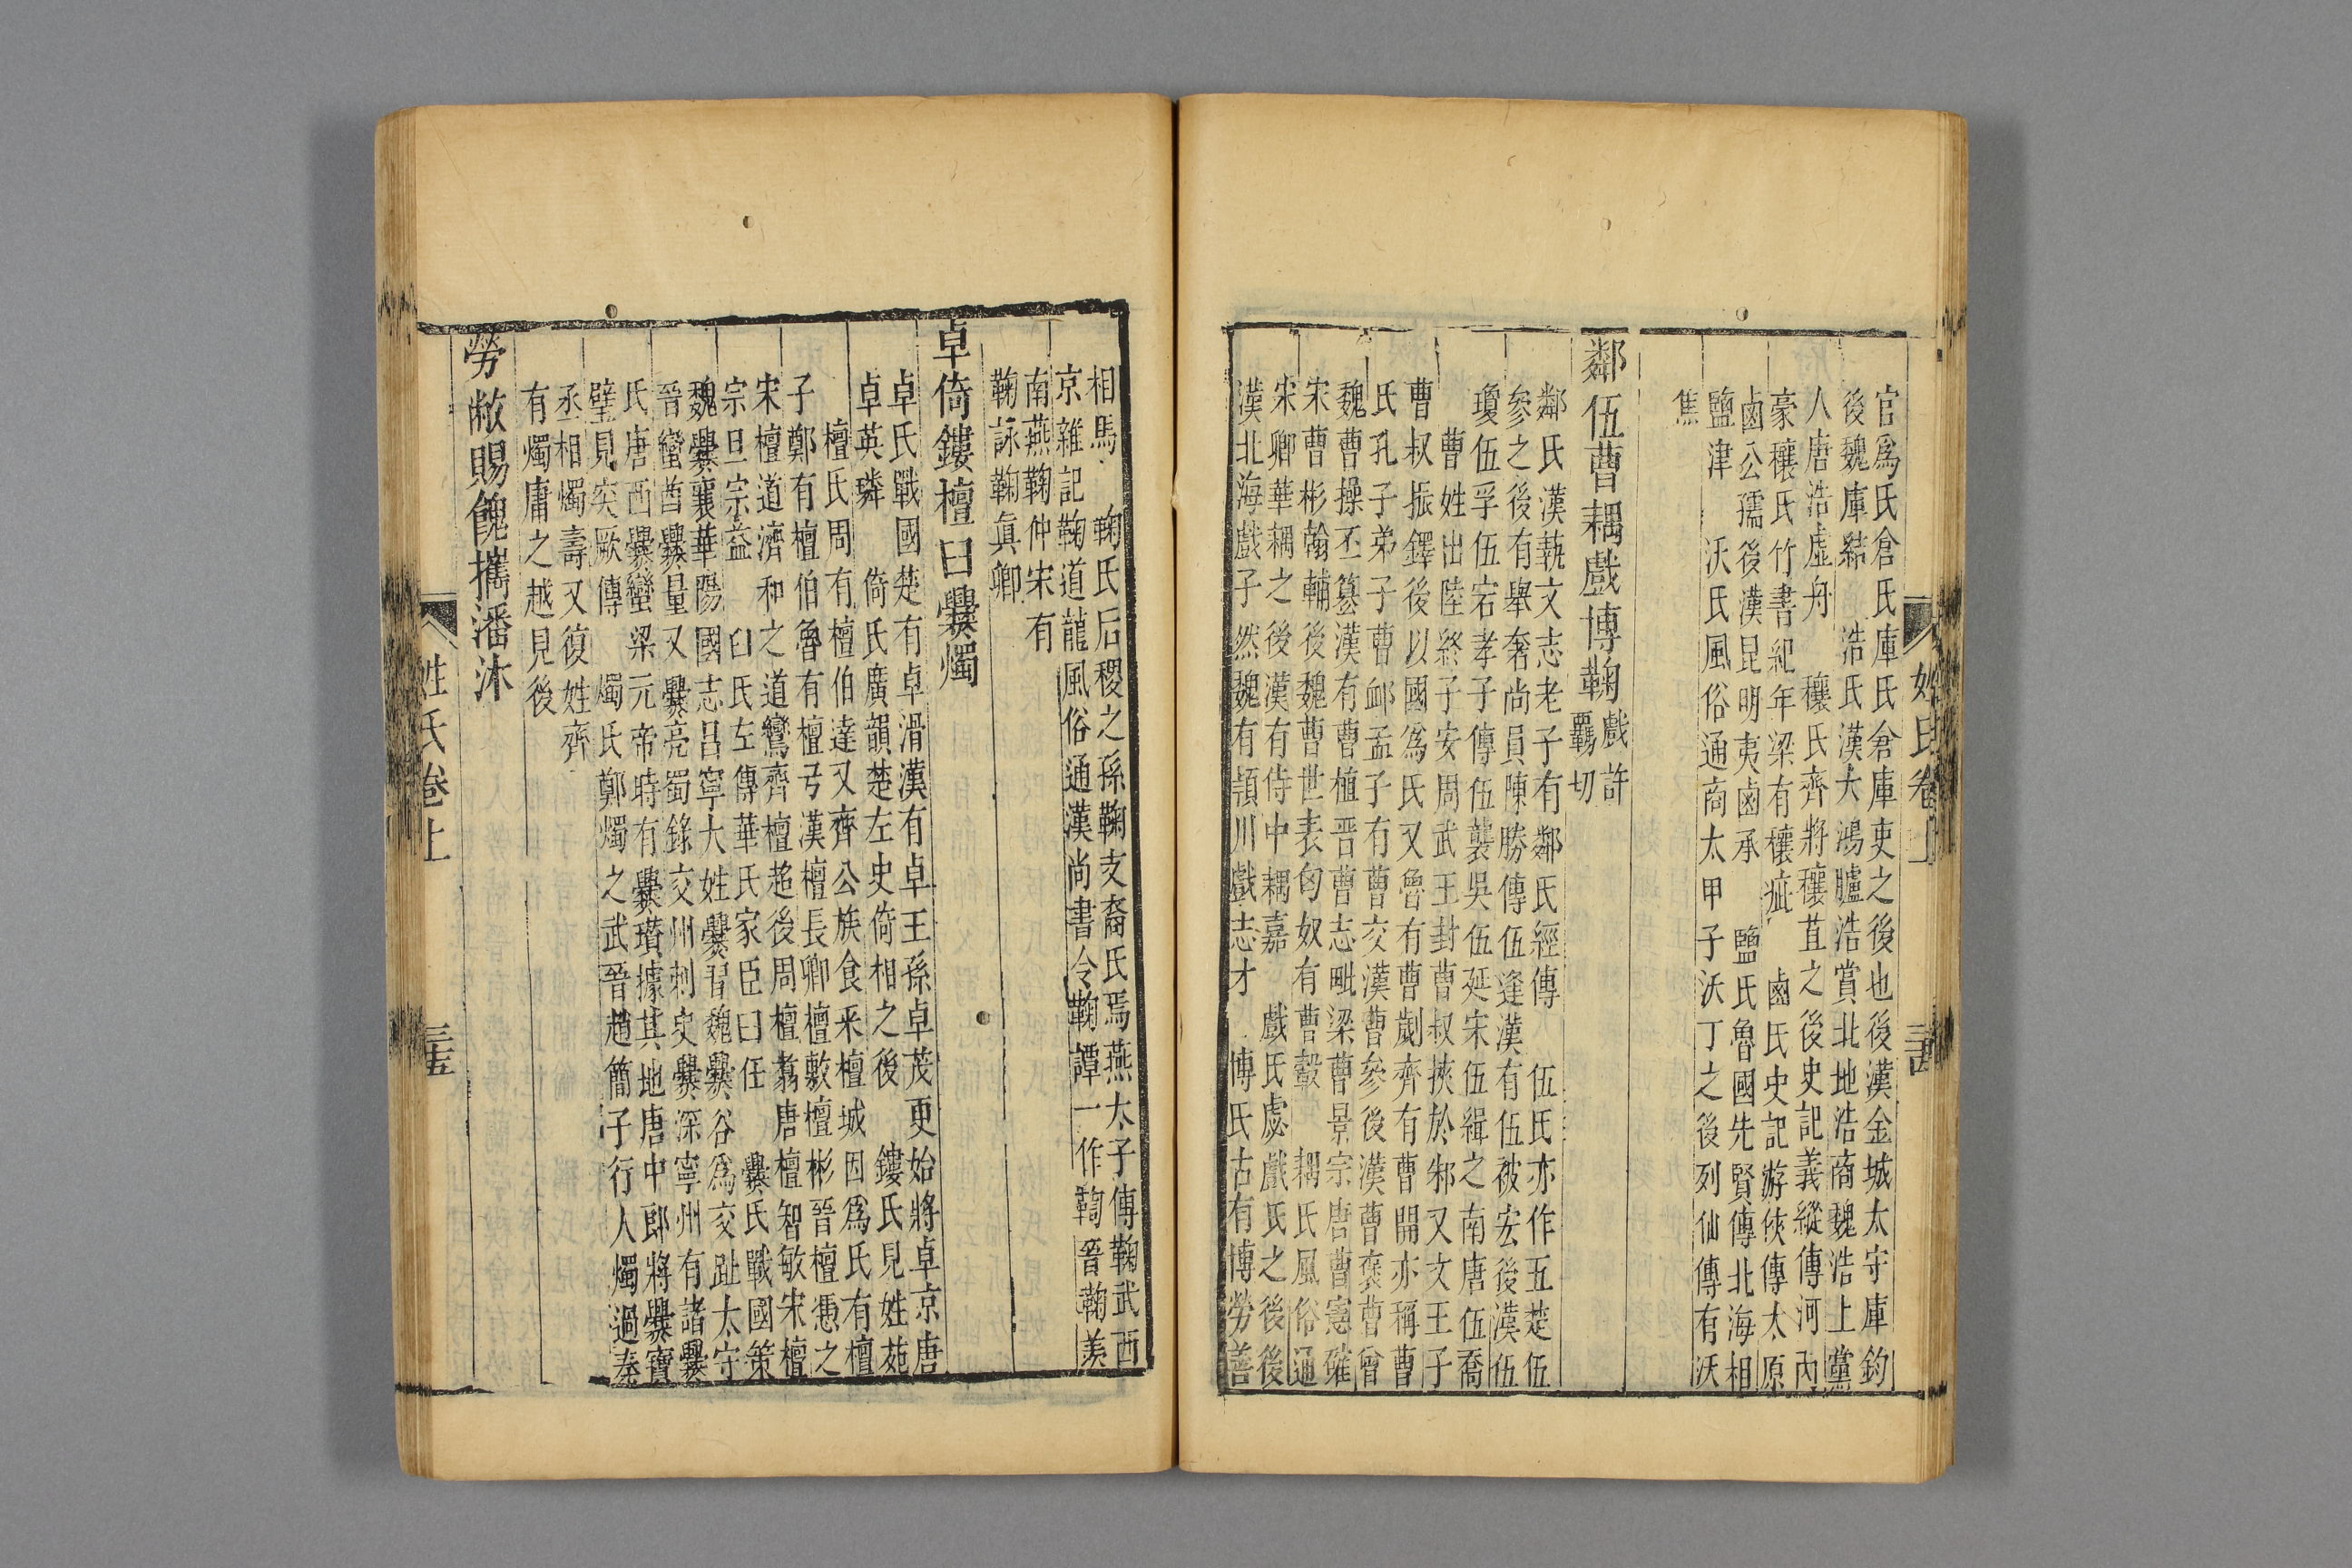 姓氏卷上
官爲氏倉氏庫氏倉庫吏之後也後漢金城太守庫鈞
後魏庫結　浩氏漢大鴻臚浩賞北地浩商魏浩上黨
人唐浩虛舟　穰氏齊將穰苴之後史記義縱傳河內
豪穰氏竹書紀年梁有穰疵　鹵氏史記游俠傳太原
鹵公孺後漢昆明夷鹵承　鹽氏魯國先賢傳北海相
鹽津　沃氏風俗通商太甲子沃丁之後列仙傳有沃
焦
鄰伍曹耦戲博鞠戲許覊切
鄰氏漢執文志老子有鄰氏經傳　伍氏亦作五楚伍
參之後有舉奢尚員陳勝傳伍逢漢有伍被宏後漢伍
瓊伍孚伍宕孝子傳伍襲吳伍延宋伍緝之南唐伍喬
曹姓出陸終子安周武王封曹叔挾於邾又文王子
曹叔振鐸後以國爲氏又魯有曹劌齊有曹開亦稱曹
氏孔子弟子曹卹孟子有曹交漢曹參後漢曹褒曹曾
魏曹操丕篡漢有曹植晋曹志毗梁曹景宗唐曹憲確
宋曹彬翰輔後魏曹世表匈奴有曹轂　耦氏風俗通
宋卿華耦之後漢有侍中耦嘉　戲氏虙戲氏之後後
漢北海戲子然魏有潁川戲志才　博氏古有博勞善
相馬　鞠氏后稷之孫鞠支裔氏焉燕太子傳鞠武西
京雜記鞠道龍風俗通漢尚書令鞠譚一作鞫晉鞠羨
南燕鞠仲宋有
鞠詠鞠眞卿
卓倚鏤檀曰爨燭
卓氏戰國楚有卓滑漢有卓王孫卓茂更始將卓京唐
卓英璘　倚氏廣韻楚左史倚相之後　鏤氏見姓苑
檀氏周有檀伯達又齊公族食釆檀城因爲氏有檀
子鄭有檀伯魯有檀弓漢檀長卿檀敷檀彬晉檀憑之
宋檀道濟和之道鸞齊檀超後周檀翥唐檀智敏宋檀
宗旦宗益　曰氏左傳華氏家臣曰任　爨氏戰國策
魏爨襄華陽國志呂寧大姓爨習魏爨谷爲交趾太守
晉蠻酋爨量又爨亮蜀錄交州刺史爨深寧州有諸爨
氏唐西爨蠻梁元帝時有爨瓉據其地唐中郎將爨寶
璧見突厥傳　燭氏鄭燭之武晉趙簡子行人燭過秦
丞相燭壽又復姓齊
有燭庸之越見後
勞敝賜餽攜潘沐
姓氏卷上
三五